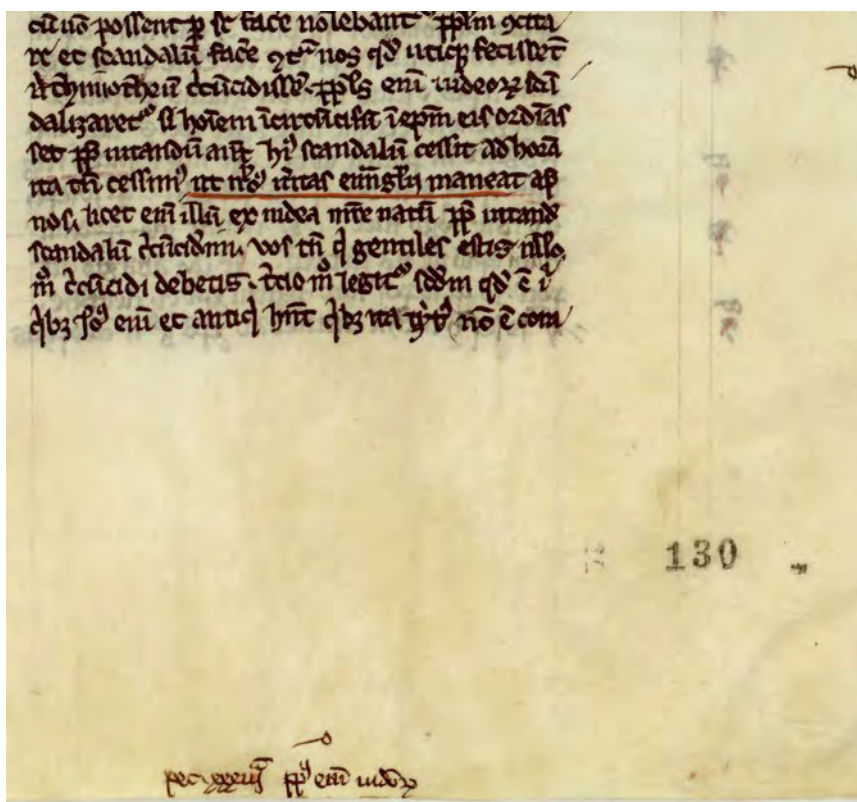 cū uō possent ꝑ se facē nolebant ppłm ꝯcita
re et scandalū facē ꝯtͣ nos qđ utiqꝫ fecissēt
thymotheū cͥcūcidissē. ppłs enī iudeoꝝ scā
dalizaretᷣ si hoīem īcircūcisū ī epm̄ eis ordīas
set pp̄ uitandū hͦ scandalū cessit ad horā
ita tn̄ cessimꝰ ut uītas euuāglii maneat ap̄
nos. licet enī illū ex iudea mr̄e natū pp̄ uitand
scandalū cͥcūcidīmꝰ vos tn̄ qͥ gentiles estis nͦllo
mͦ cͥcūcidi debetis. t̄cio mͦ legitᷣ scd̄m qđ ē ī
qͥbꝫ enī et antiqͥ hn̄t qͥbꝫ ita nō ē com
130
pec. xxxiii pp̄ls enī iudeoꝝ